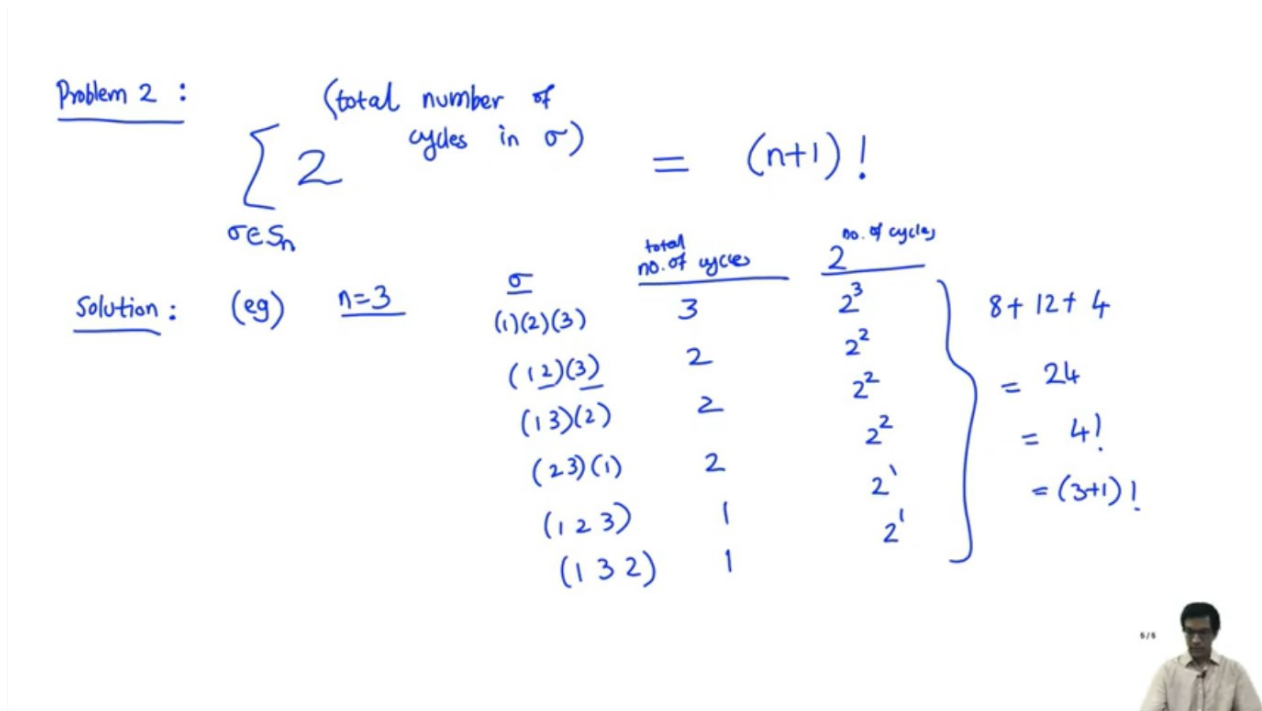 Problem 2 :
(total number of
cycles in σ)
∑ 2 = (n+1)!
σ∈Sn
Solution : (eg) n=3
σ total no. of cycles 2^no. of cycles
(1)(2)(3) 3 2^3
(12)(3) 2 2^2
(13)(2) 2 2^2
(23)(1) 2 2^2
(1 2 3) 1 2^1
(1 3 2) 1 2^1
8 + 12 + 4
= 24
= 4!
= (3+1)!
5/5